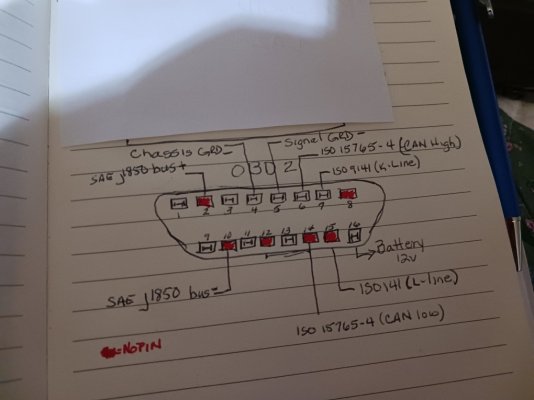 Chassis GRD
Signal GRD
SAE J1850 bus+
ISO 15765-4 (CAN High)
ISO 9141 (K-Line)
1 2 3 4 5 6 7 8
9 10 11 12 13 14 15 16
Battery
12v
SAE J1850 bus-
ISO 141 (L-line)
ISO 15765-4 (CAN low)
=NO PIN